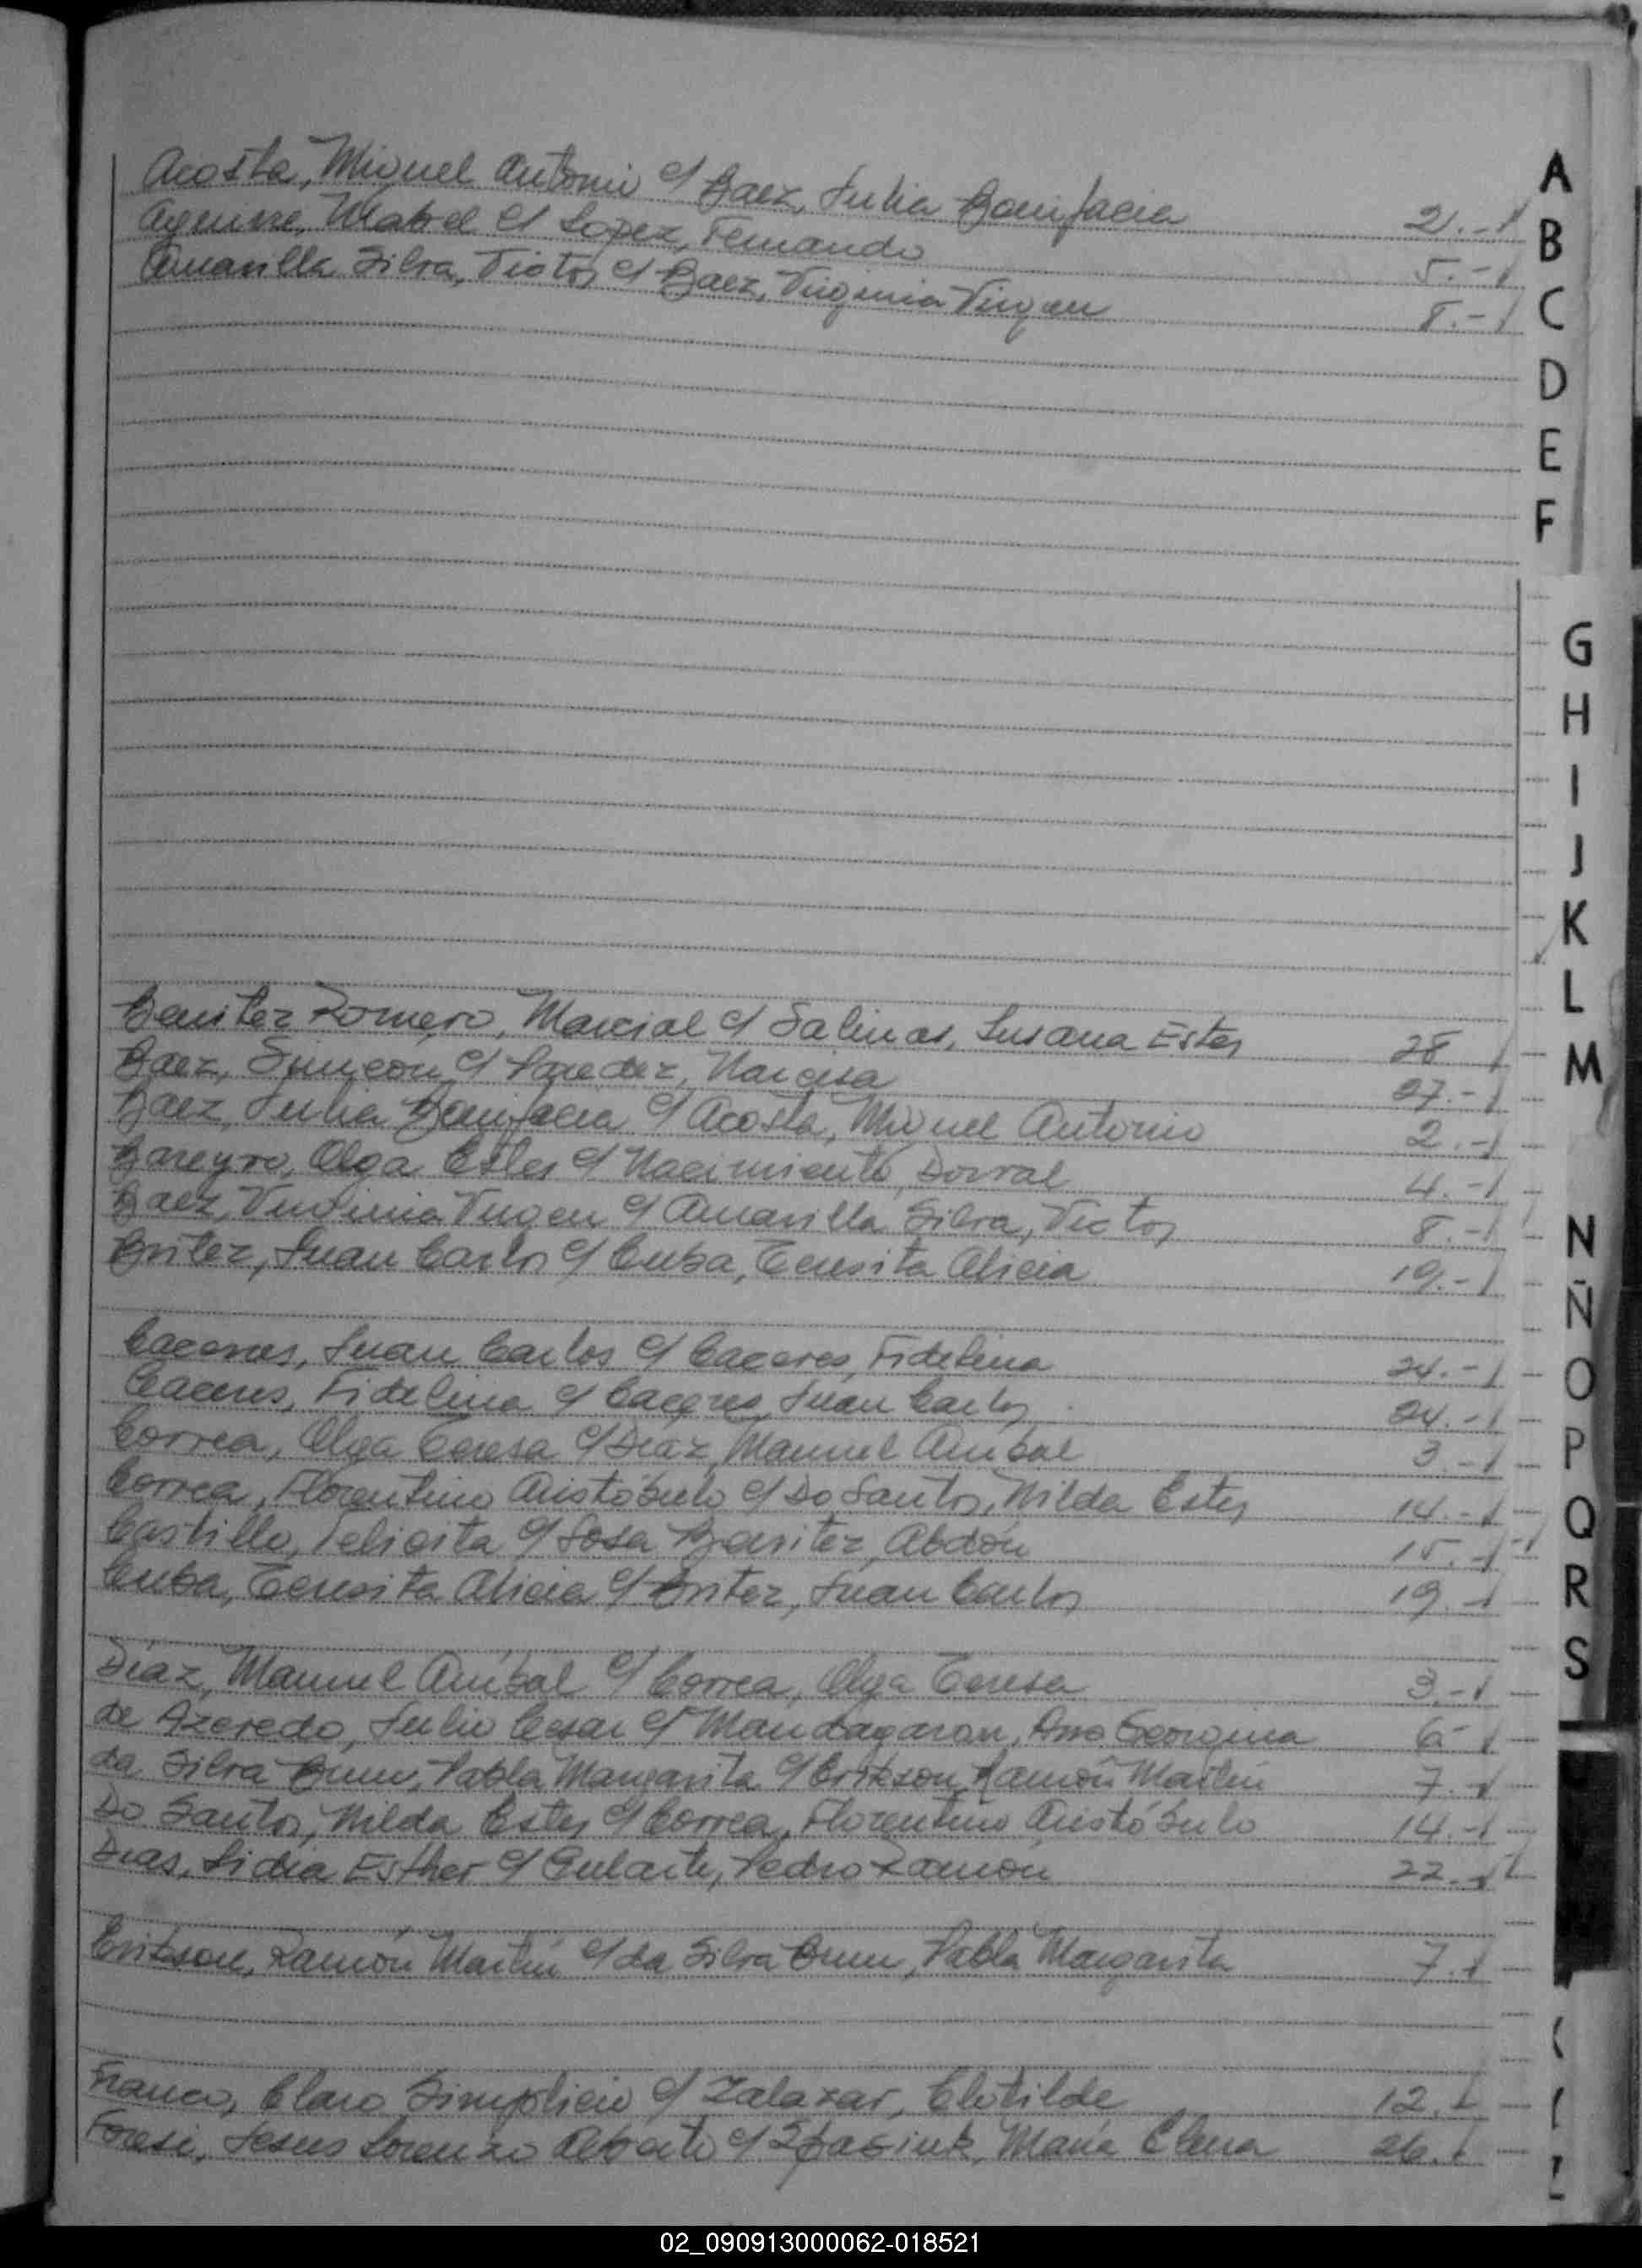 Acosta, Miguel Antonio c/ Baez, Julia Bonifacia 2.-
A
Aguirre, Mabel c/ Lopez, Fernando 5.-
B
Amarilla Silva, Victor c/ Baez, Virginia Virgen 8.-
C
D
E
F
G
H
I
J
K
L
Benitez Romero, Marcial c/ Salinas, Susana Ester 28
M
Baez, Simeon c/ Paredez, Narcisa 27.-
Baez, Julia Bonifacia c/ Acosta, Miguel Antonio 2.-
Bareyro, Olga Ester c/ Nacimiento, Dorval 4.-
Baez, Virginia Virgen c/ Amarilla Silva, Victor 8.-
N
Britez, Juan Carlos c/ Cuba, Teresita Alicia 19.-
Ñ
Caceres, Juan Carlos c/ Caceres, Fidelina 24.-
O
Caceres, Fidelina c/ Caceres, Juan Carlos 24.-
Correa, Olga Teresa c/ Diaz, Manuel Anibal 3.-
P
Correa, Florentino Aristóbulo c/ Do Santos, Nilda Ester 14.-
Q
Castillo, Felicita c/ Sosa Benitez, Abdón 15.-
Cuba, Teresita Alicia c/ Britez, Juan Carlos 19.-
R
S
Díaz, Manuel Anibal c/ Correa, Olga Teresa 3.-
de Azeredo, Julio Cesar c/ Mandagaran, Ana Georgina 6-
da Silva, Pabla Margarita c/ Erikson, Ramón Martín 7.-
Do Santos, Nilda Ester c/ Correa, Florentino Aristóbulo 14.-
Dias, Lidia Esther c/ Gularte, Pedro Ramón 22.-
Erikson, Ramón Martín c/ da Silva, Pabla Margarita 7.
Franco, Claro Simplicio c/ Zalazar, Clotilde 12.
Foresi, Jesus Lorenzo Alberto c/ Spasiuk, María Elena 26.
Z
02_090913000062-018521